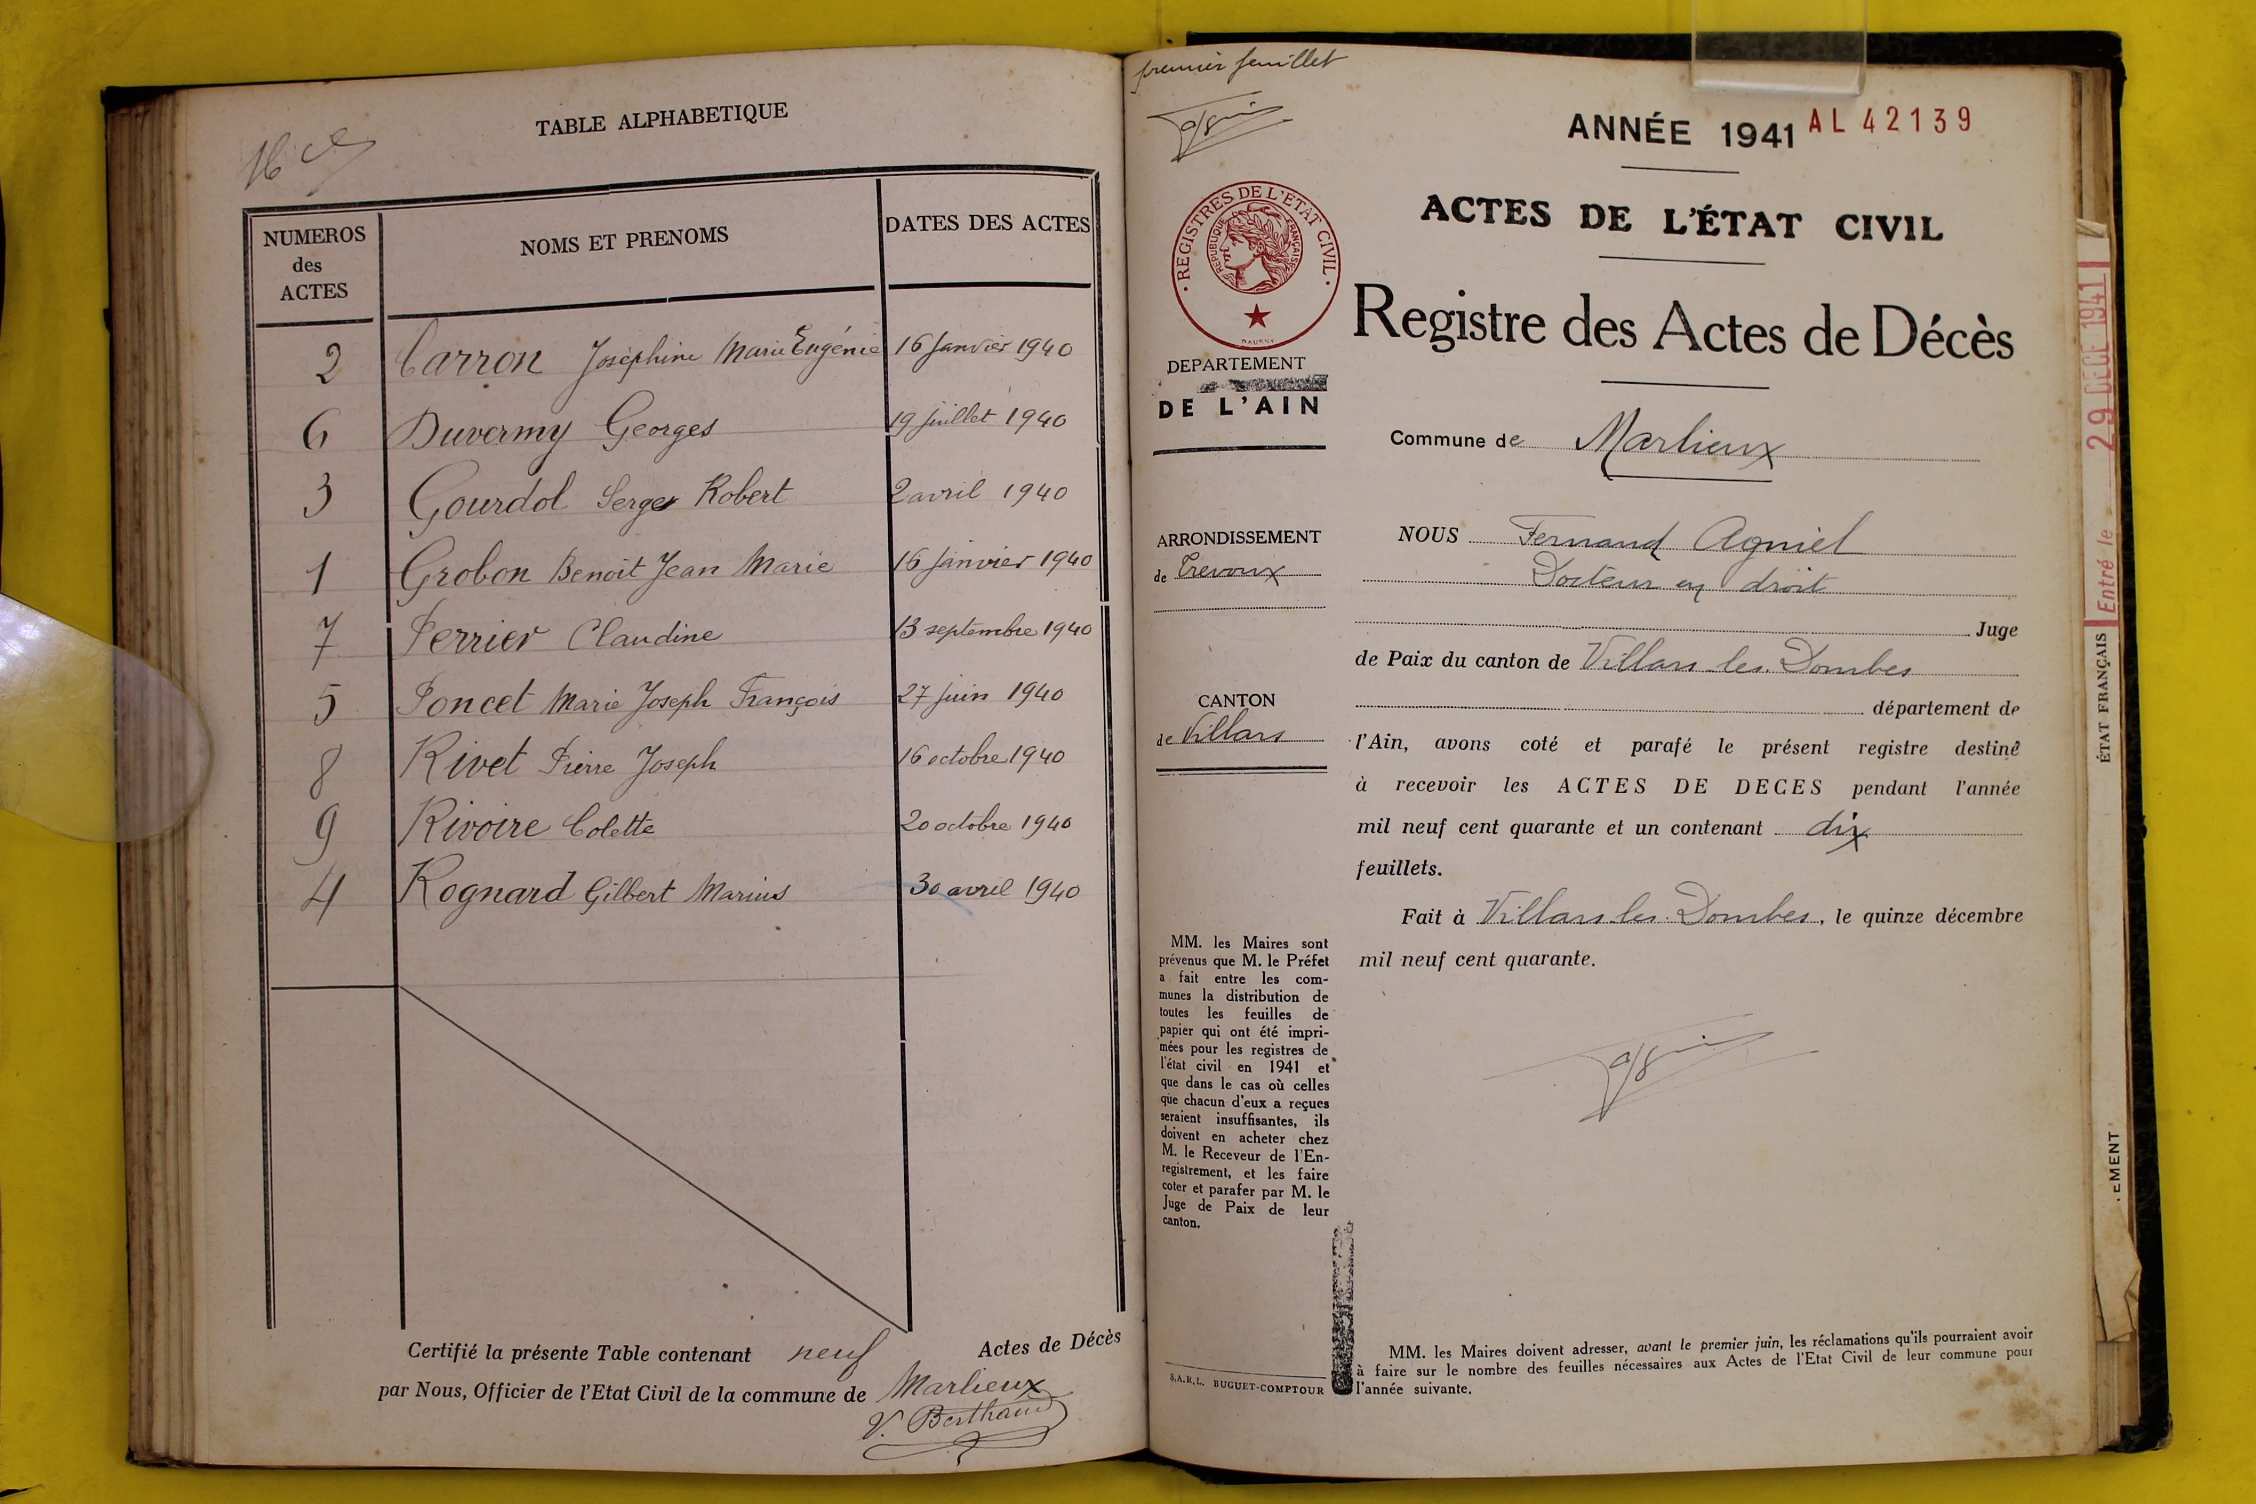 TABLE ALPHABETIQUE
NUMEROS des ACTES
NOMS ET PRENOMS
DATES DES ACTES
2 Carron Joséphine Marie Eugénie 16 Janvier 1940
6 Duvermy Georges 19 Juillet 1940
3 Gourdol Serge Robert 2 avril 1940
1 Grobon Benoît Jean Marie 16 Janvier 1940
7 Perrier Claudine 13 septembre 1940
5 Poncet Marie Joseph François 27 Juin 1940
8 Rivet Pierre Joseph 16 octobre 1940
9 Rivoire Colette 20 octobre 1940
4 Rognard Gilbert Marius 30 avril 1940
Certifié la présente Table contenant neuf Actes de Décès
par Nous, Officier de l'Etat Civil de la commune de Marlieux
V. Berthaud
premier feuillet
ANNÉE 1941 AL 42139
ACTES DE L'ÉTAT CIVIL
Registre des Actes de Décès
· REGISTRES DE L'ETAT CIVIL ·
REPUBLIQUE FRANÇAISE
DEPARTEMENT
DE L'AIN
Commune de Marlieux
ARRONDISSEMENT
de Trevoux
CANTON
de Villars
NOUS Fernand Agniel
Docteur en droit
Juge
de Paix du canton de Villars les Dombes
département de
l'Ain, avons coté et parafé le présent registre destiné
à recevoir les ACTES DE DECES pendant l'année
mil neuf cent quarante et un contenant dix
feuillets.
Fait à Villars les Dombes, le quinze décembre
mil neuf cent quarante.
MM. les Maires sont
prévenus que M. le Préfet
a fait entre les com-
munes la distribution de
toutes les feuilles de
papier qui ont été impri-
mées pour les registres de
l'état civil en 1941 et
que dans le cas où celles
que chacun d'eux a reçues
seraient insuffisantes, ils
doivent en acheter chez
M. le Receveur de l'En-
registrement, et les faire
coter et parafer par M. le
Juge de Paix de leur
canton.
S.A.R.L. BUGUET-COMPTOUR
MM. les Maires doivent adresser, avant le premier juin, les réclamations qu'ils pourraient avoir
à faire sur le nombre des feuilles nécessaires aux Actes de l'Etat Civil de leur commune pour
l'année suivante.
ÉTAT FRANÇAIS
Entré le 29 DECE 1941
EMENT